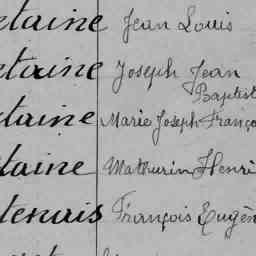 etaine Jean Louis
etaine Joseph Jean
Baptist
taine Marie Joseph Franço
taine Mathurin Henri
tenais François Eugèn